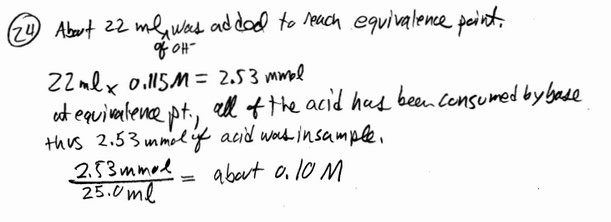 (24) About 22 ml of OH⁻ was added to reach equivalence point.
22 ml x 0.115M = 2.53 mmol
at equivalence pt., all of the acid has been consumed by base
thus 2.53 mmol of acid was in sample.
2.53 mmol / 25.0 ml = about 0.10 M